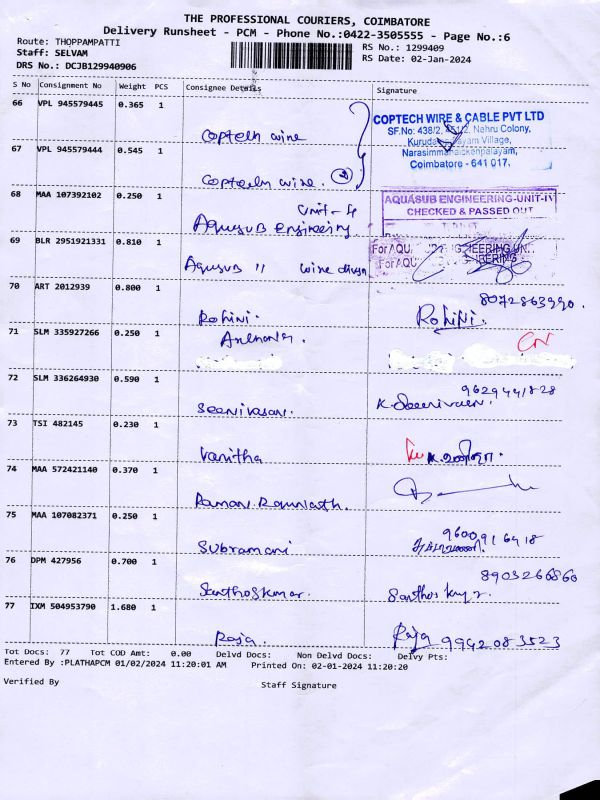 THE PROFESSIONAL COURIERS, COIMBATORE
Delivery Runsheet - PCM - Phone No.:0422-3505555 - Page No.:6
Route: THOPPAMPATTI
Staff: SELVAM
DRS No.: DCJB129940906
RS No.: 1299409
RS Date: 02-Jan-2024
S No Consignment No Weight PCS Consignee Details Signature
66 VPL 945579445 0.365 1
Coptech wire
COPTECH WIRE & CABLE PVT LTD
SF.No: 438/2, Nehru Colony,
Village,
Narasimmanaickenpalayam,
Coimbatore - 641 017.
67 VPL 945579444 0.545 1
Coptech wire. 2
68 MAA 107392102 0.250 1
Unit-4
Aquasub Engineering
AQUASUB ENGINEERING-UNIT-IV
CHECKED & PASSED OUT
69 BLR 2951921331 0.810 1
Aquasub 11 wire divsn
For AQU
For AQU
70 ART 2012939 0.800 1
Rohini.
8072863990.
Rohini.
71 SLM 335927266 0.250 1
CN
72 SLM 336264930 0.590 1
Seenivasan.
9629441828
K. Seenivasan.
73 TSI 482145 0.230 1
Vanitha
74 MAA 572421140 0.370 1
Raman
75 MAA 107082371 0.250 1
Subramani
9600916418
76 DPM 427956 0.700 1
Santhoskumar.
8903266860
77 IXM 504953790 1.680 1
Raja.
Raja 9942083523
Tot Docs: 77 Tot COD Amt: 0.00 Delvd Docs: Non Delvd Docs: Delvy Pts:
Entered By :PLATHAPCM 01/02/2024 11:20:01 AM Printed On: 02-01-2024 11:20:20
Verified By Staff Signature